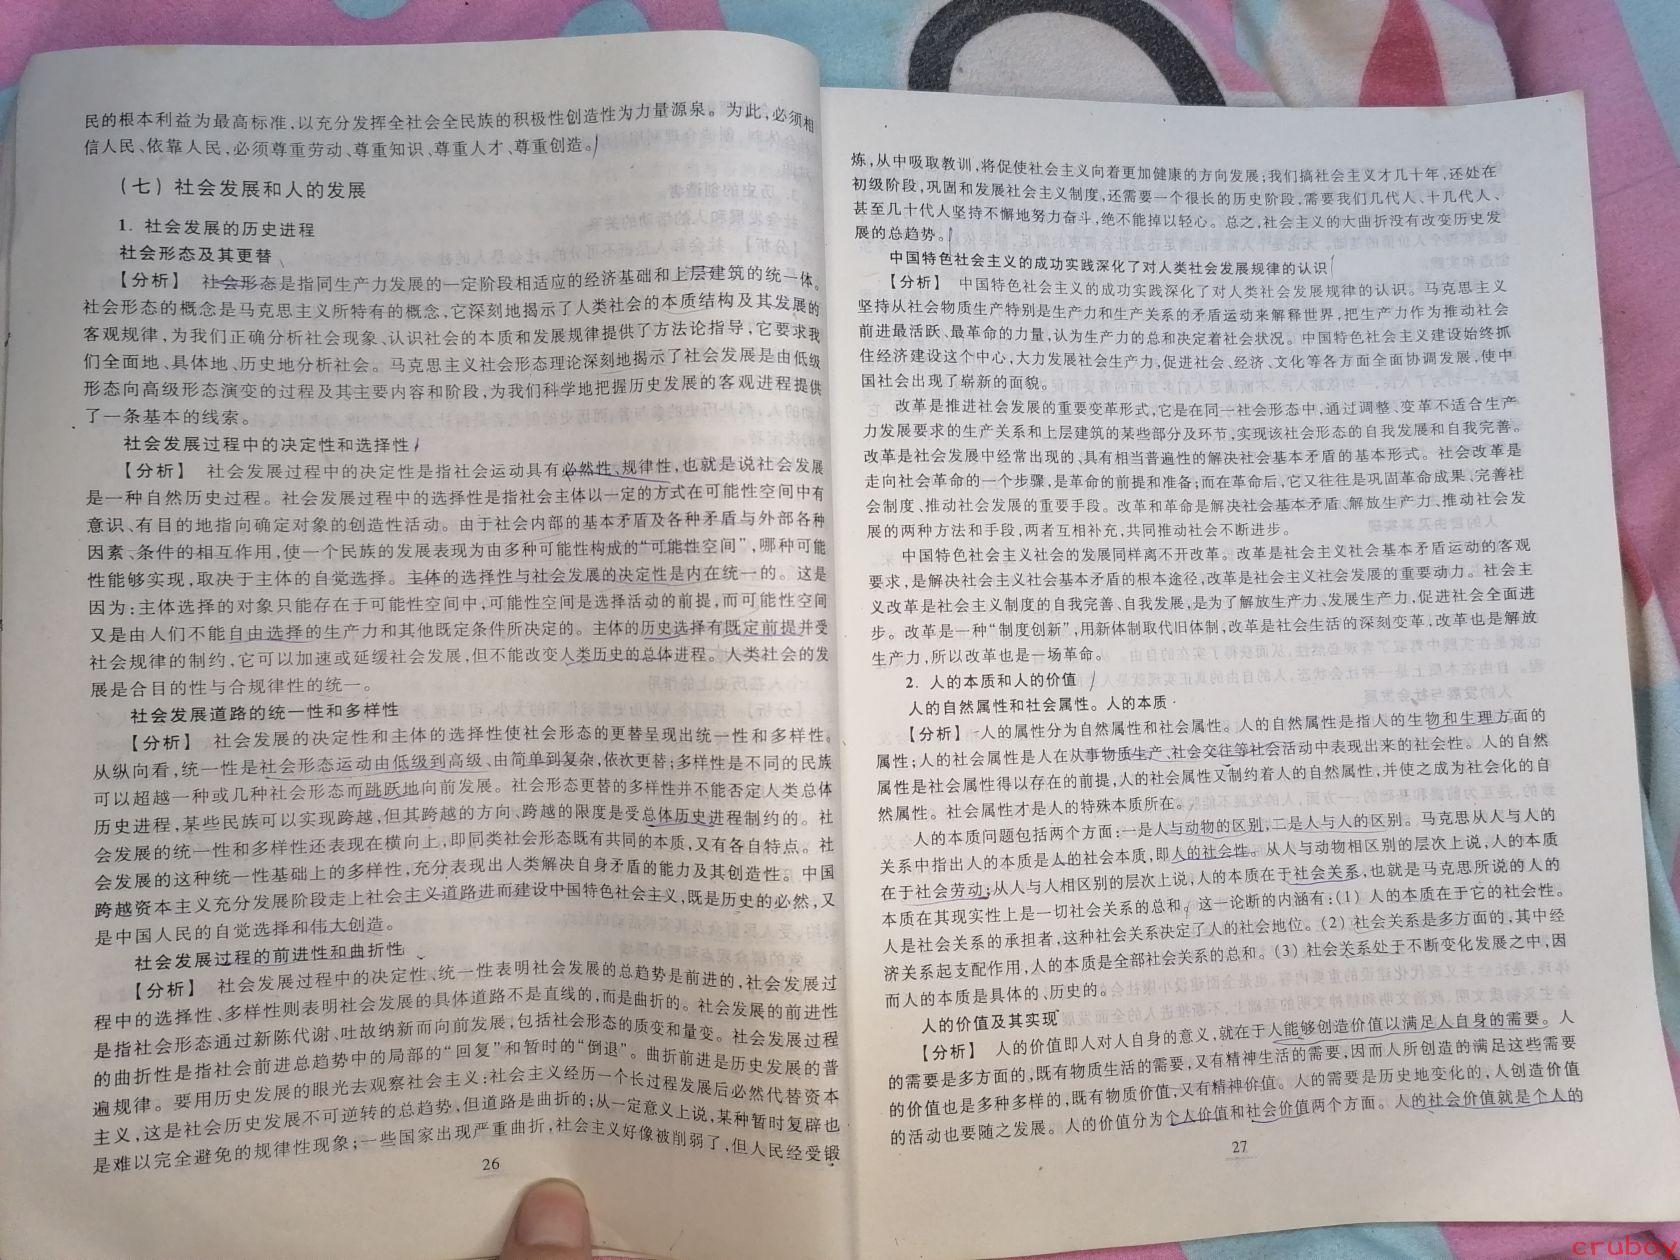 民的根本利益为最高标准,以充分发挥全社会全民族的积极性创造性为力量源泉。为此,必须相
信人民、依靠人民,必须尊重劳动、尊重知识、尊重人才、尊重创造。
(七)社会发展和人的发展
1. 社会发展的历史进程
社会形态及其更替
【分析】 社会形态是指同生产力发展的一定阶段相适应的经济基础和上层建筑的统一体。
社会形态的概念是马克思主义所特有的概念,它深刻地揭示了人类社会的本质结构及其发展的
客观规律,为我们正确分析社会现象、认识社会的本质和发展规律提供了方法论指导,它要求我
们全面地、具体地、历史地分析社会。马克思主义社会形态理论深刻地揭示了社会发展是由低级
形态向高级形态演变的过程及其主要内容和阶段,为我们科学地把握历史发展的客观进程提供
了一条基本的线索。
社会发展过程中的决定性和选择性
【分析】 社会发展过程中的决定性是指社会运动具有必然性、规律性,也就是说社会发展
是一种自然历史过程。社会发展过程中的选择性是指社会主体以一定的方式在可能性空间中有
意识、有目的地指向确定对象的创造性活动。由于社会内部的基本矛盾及各种矛盾与外部各种
因素、条件的相互作用,使一个民族的发展表现为由多种可能性构成的“可能性空间”,哪种可能
性能够实现,取决于主体的自觉选择。主体的选择性与社会发展的决定性是内在统一的。这是
因为:主体选择的对象只能存在于可能性空间中,可能性空间是选择活动的前提,而可能性空间
又是由人们不能自由选择的生产力和其他既定条件所决定的。主体的历史选择有既定前提并受
社会规律的制约,它可以加速或延缓社会发展,但不能改变人类历史的总体进程。人类社会的发
展是合目的性与合规律性的统一。
社会发展道路的统一性和多样性
【分析】 社会发展的决定性和主体的选择性使社会形态的更替呈现出统一性和多样性。
从纵向看,统一性是社会形态运动由低级到高级、由简单到复杂,依次更替;多样性是不同的民族
可以超越一种或几种社会形态而跳跃地向前发展。社会形态更替的多样性并不能否定人类总体
历史进程,某些民族可以实现跨越,但其跨越的方向、跨越的限度是受总体历史进程制约的。社
会发展的统一性和多样性还表现在横向上,即同类社会形态既有共同的本质,又有各自特点。社
会发展的这种统一性基础上的多样性,充分表现出人类解决自身矛盾的能力及其创造性。中国
跨越资本主义充分发展阶段走上社会主义道路进而建设中国特色社会主义,既是历史的必然,又
是中国人民的自觉选择和伟大创造。
社会发展过程的前进性和曲折性
【分析】 社会发展过程中的决定性、统一性表明社会发展的总趋势是前进的,社会发展过
程中的选择性、多样性则表明社会发展的具体道路不是直线的,而是曲折的。社会发展的前进性
是指社会形态通过新陈代谢、吐故纳新而向前发展,包括社会形态的质变和量变。社会发展过程
的曲折性是指社会前进总趋势中的局部的“回复”和暂时的“倒退”。曲折前进是历史发展的普
遍规律。要用历史发展的眼光去观察社会主义:社会主义经历一个长过程发展后必然代替资本
主义,这是社会历史发展不可逆转的总趋势,但道路是曲折的;从一定意义上说,某种暂时复辟也
是难以完全避免的规律性现象;一些国家出现严重曲折,社会主义好像被削弱了,但人民经受锻
26
炼,从中吸取教训,将促使社会主义向着更加健康的方向发展;我们搞社会主义才几十年,还处在
初级阶段,巩固和发展社会主义制度,还需要一个很长的历史阶段,需要我们几代人、十几代人、
甚至几十代人坚持不懈地努力奋斗,绝不能掉以轻心。总之,社会主义的大曲折没有改变历史发
展的总趋势。
中国特色社会主义的成功实践深化了对人类社会发展规律的认识
【分析】 中国特色社会主义的成功实践深化了对人类社会发展规律的认识。马克思主义
坚持从社会物质生产特别是生产力和生产关系的矛盾运动来解释世界,把生产力作为推动社会
前进最活跃、最革命的力量,认为生产力的总和决定着社会状况。中国特色社会主义建设始终抓
住经济建设这个中心,大力发展社会生产力,促进社会、经济、文化等各方面全面协调发展,使中
国社会出现了崭新的面貌。
改革是推进社会发展的重要变革形式,它是在同一社会形态中,通过调整、变革不适合生产
力发展要求的生产关系和上层建筑的某些部分及环节,实现该社会形态的自我发展和自我完善。
改革是社会发展中经常出现的、具有相当普遍性的解决社会基本矛盾的基本形式。社会改革是
走向社会革命的一个步骤,是革命的前提和准备;而在革命后,它又往往是巩固革命成果、完善社
会制度、推动社会发展的重要手段。改革和革命是解决社会基本矛盾、解放生产力、推动社会发
展的两种方法和手段,两者互相补充,共同推动社会不断进步。
中国特色社会主义社会的发展同样离不开改革。改革是社会主义社会基本矛盾运动的客观
要求,是解决社会主义社会基本矛盾的根本途径,改革是社会主义社会发展的重要动力。社会主
义改革是社会主义制度的自我完善、自我发展,是为了解放生产力、发展生产力,促进社会全面进
步。改革是一种“制度创新”,用新体制取代旧体制,改革是社会生活的深刻变革,改革也是解放
生产力,所以改革也是一场革命。
2. 人的本质和人的价值
人的自然属性和社会属性。人的本质
【分析】 人的属性分为自然属性和社会属性。人的自然属性是指人的生物和生理方面的
属性;人的社会属性是人在从事物质生产、社会交往等社会活动中表现出来的社会性。人的自然
属性是社会属性得以存在的前提,人的社会属性又制约着人的自然属性,并使之成为社会化的自
然属性。社会属性才是人的特殊本质所在。
人的本质问题包括两个方面:一是人与动物的区别,二是人与人的区别。马克思从人与人的
关系中指出人的本质是人的社会本质,即人的社会性。从人与动物相区别的层次上说,人的本质
在于社会劳动;从人与人相区别的层次上说,人的本质在于社会关系,也就是马克思所说的人的
本质在其现实性上是一切社会关系的总和。这一论断的内涵有:(1)人的本质在于它的社会性。
人是社会关系的承担者,这种社会关系决定了人的社会地位。(2)社会关系是多方面的,其中经
济关系起支配作用,人的本质是全部社会关系的总和。(3)社会关系处于不断变化发展之中,因
而人的本质是具体的、历史的。
人的价值及其实现
【分析】 人的价值即人对人自身的意义,就在于人能够创造价值以满足人自身的需要。人
的需要是多方面的,既有物质生活的需要,又有精神生活的需要,因而人所创造的满足这些需要
的价值也是多种多样的,既有物质价值,又有精神价值。人的需要是历史地变化的,人创造价值
的活动也要随之发展。人的价值分为个人价值和社会价值两个方面。人的社会价值就是个人的
27
cruboy